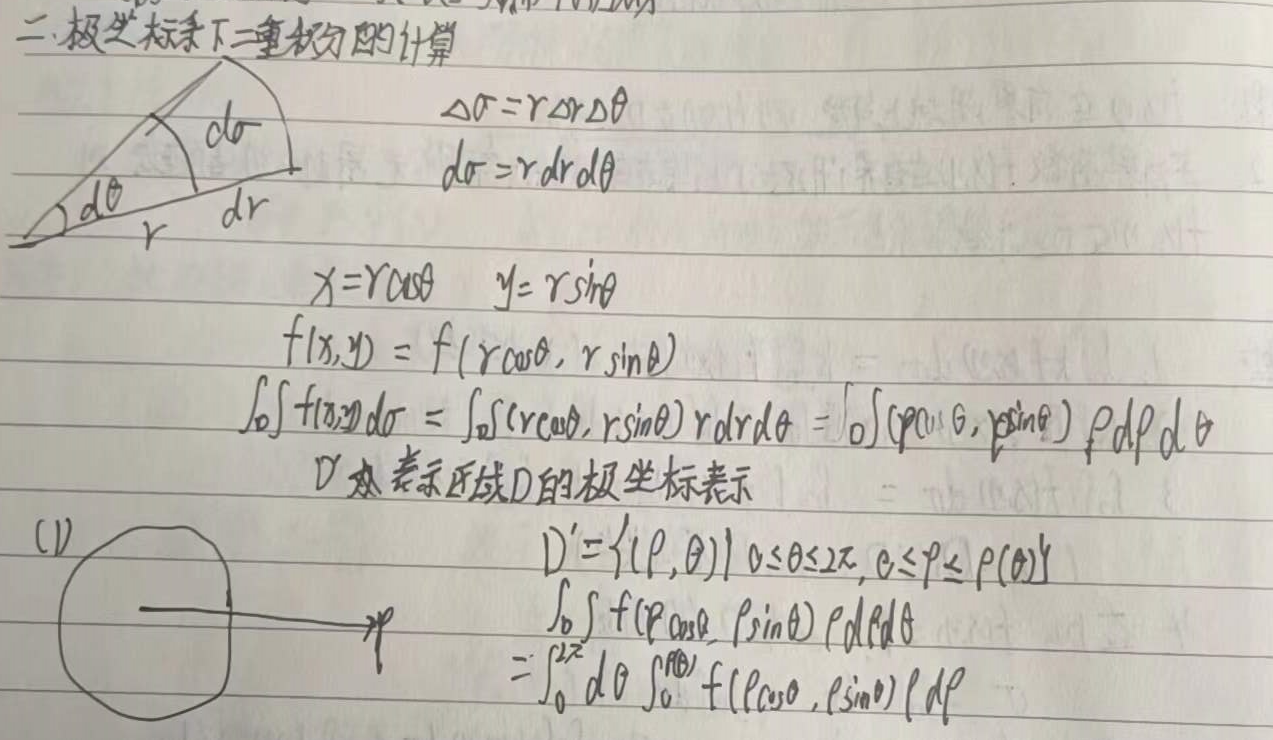 二.极坐标系下二重积分的计算
dσ
dθ
r
dr
△σ=r△r△θ
dσ=rdrdθ
x=rcosθ y=rsinθ
f(x,y) = f(rcosθ, rsinθ)
∫_D∫ f(x,y)dσ = ∫_D∫(rcosθ, rsinθ) rdrdθ = ∫_D∫(ρcosθ, ρsinθ) ρdρdθ
D' 表示区域D的极坐标表示
(1)
ρ
D'={(ρ,θ)| 0≤θ≤2π, 0≤ρ≤ρ(θ)}
∫_D∫ f(ρcosθ, ρsinθ) ρdρdθ
=∫_0^{2π} dθ ∫_0^{ρ(θ)} f(ρcosθ, ρsinθ) ρdρ